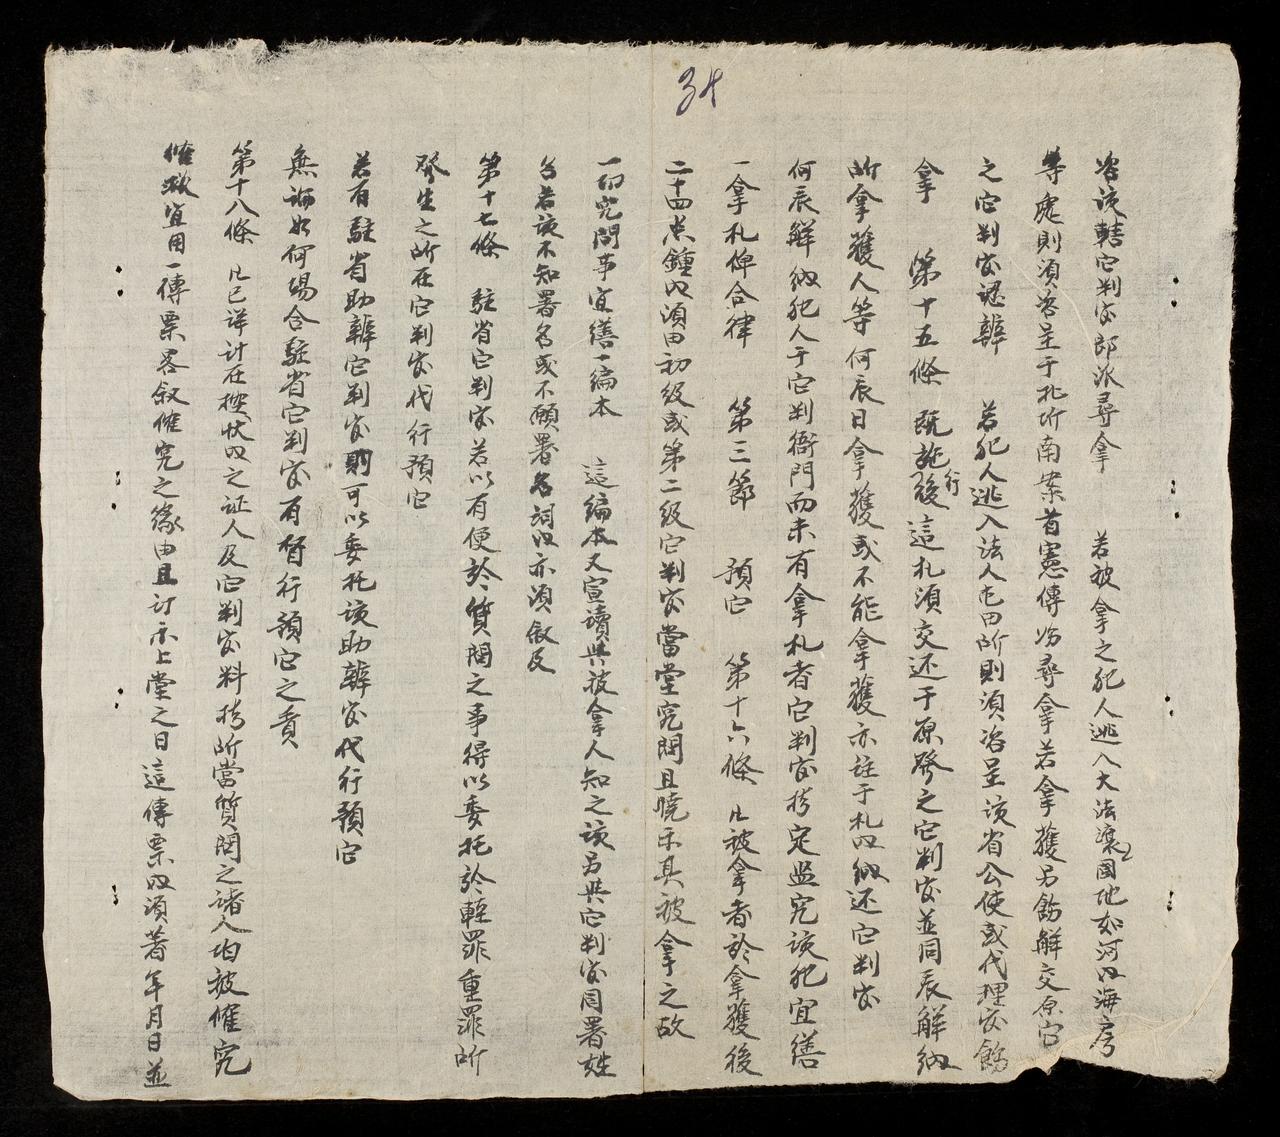 34
咨該轄它判官郎派尋拿　若被拿之犯人逃入大法讓国地如河内海房
等處則須咨呈于北圻南案首憲傳飭尋拿若拿獲另飭解交原它
之它判官認辦　若犯人逃入法人屯田所則須咨呈該省公使或代理官飭
拿　第十五條　既施行後這札須交还于原發之它判官並同辰解納
所拿獲人等何辰日拿獲或不能拿獲亦註于札内納还它判官
何辰解納犯人于它判衙門而未有拿札者它判官拷定监究該犯宜繕
一拿札俾合律　第三節　預它　第十六條　凡被拿者於拿獲後
二十四点鍾内須由初級或第二級它判官當堂究問且曉示其被拿之故
一切究問事宜繕一編本　這編本又宣讀與被拿人知之該另與它判官同署姓
名若該不知署名或不願署名詞内亦須叙及
第十七條　駐省它判官若以有便於質問之事得以委托於輕罪重罪所
發生之所在它判官代行預它
若有駐省助辦它判官則可以委托該助辦官代行預它
無論如何場合駐省它判官有督行預它之責
第十八條　凡已详计在控状内之证人及它判官料拷所當質問之諸人均被催究
催狀宜用一傳票畧叙催究之緣由且訂示上堂之日這傳票内須著年月日並